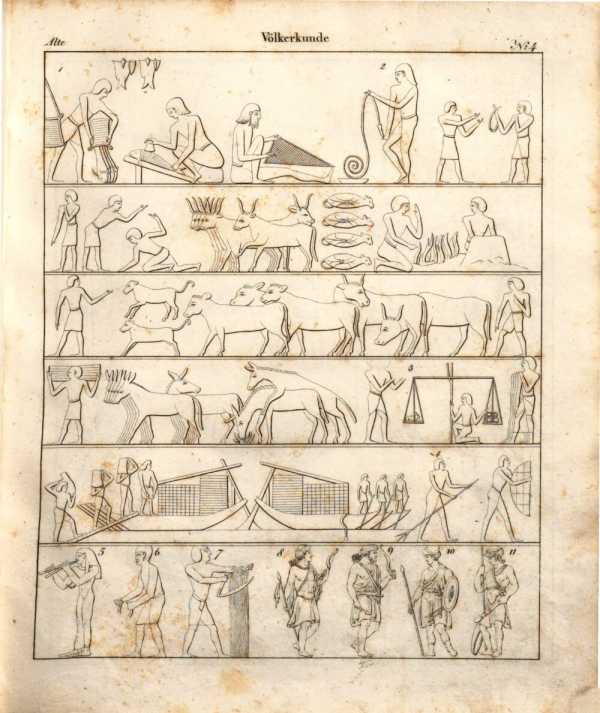 Alte Völkerkunde N: 4
1 2
3
5 6 7 8 9 10 11